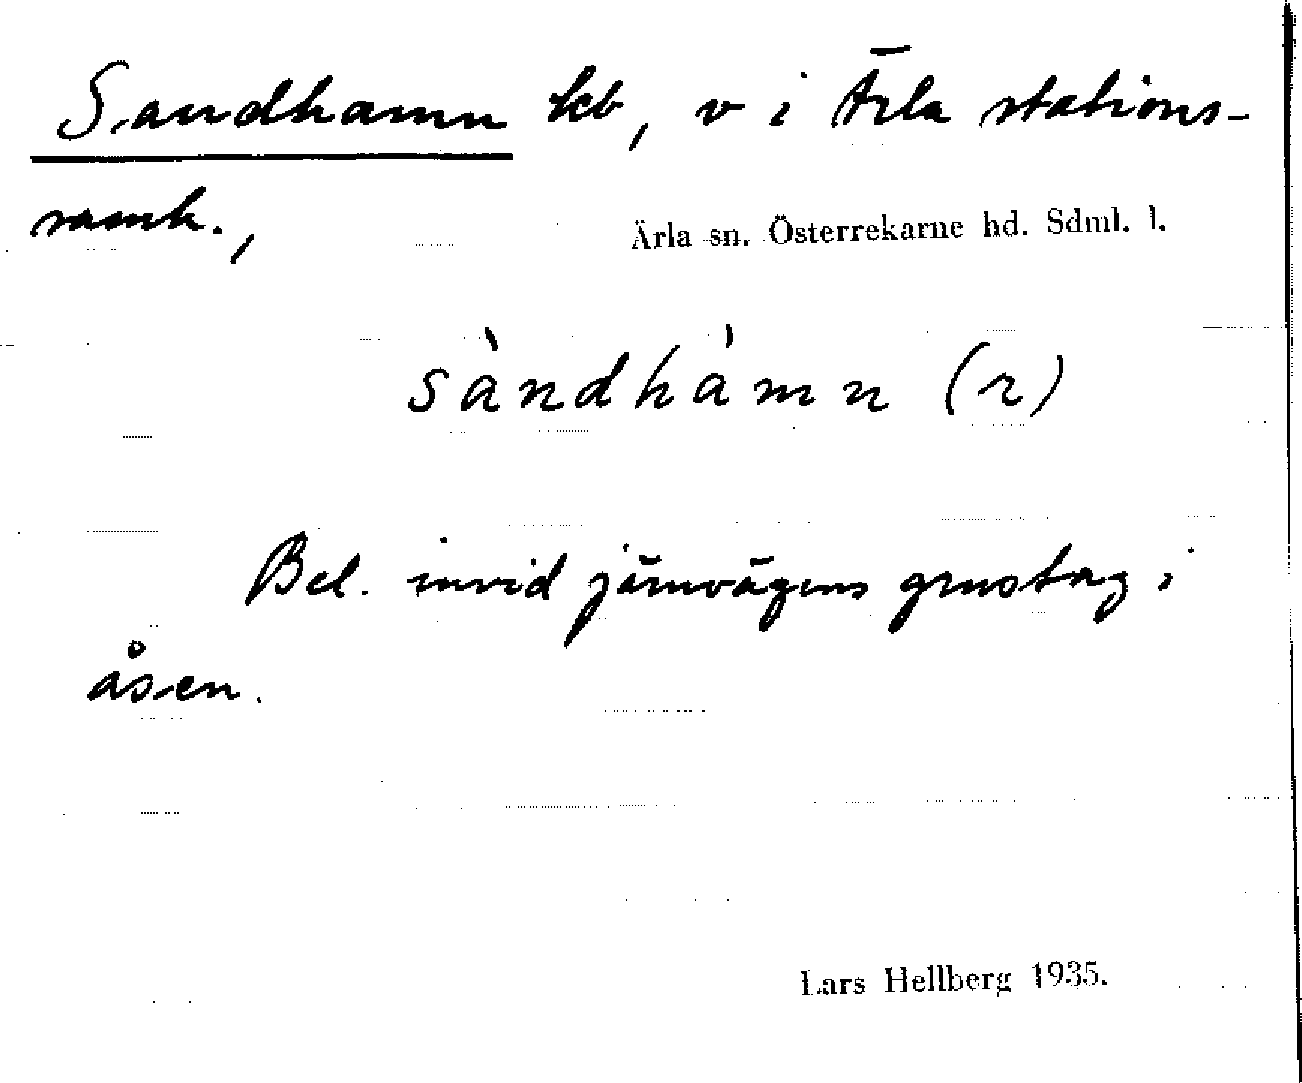 Sandhamn leb, v i Ärla stations-
samh.,
Ärla sn. Österrekarne hd. Sdml. l.
sàndhámn (r)
Bel. invid järnvägens grustag i
åsen.
Lars Hellberg 1935.